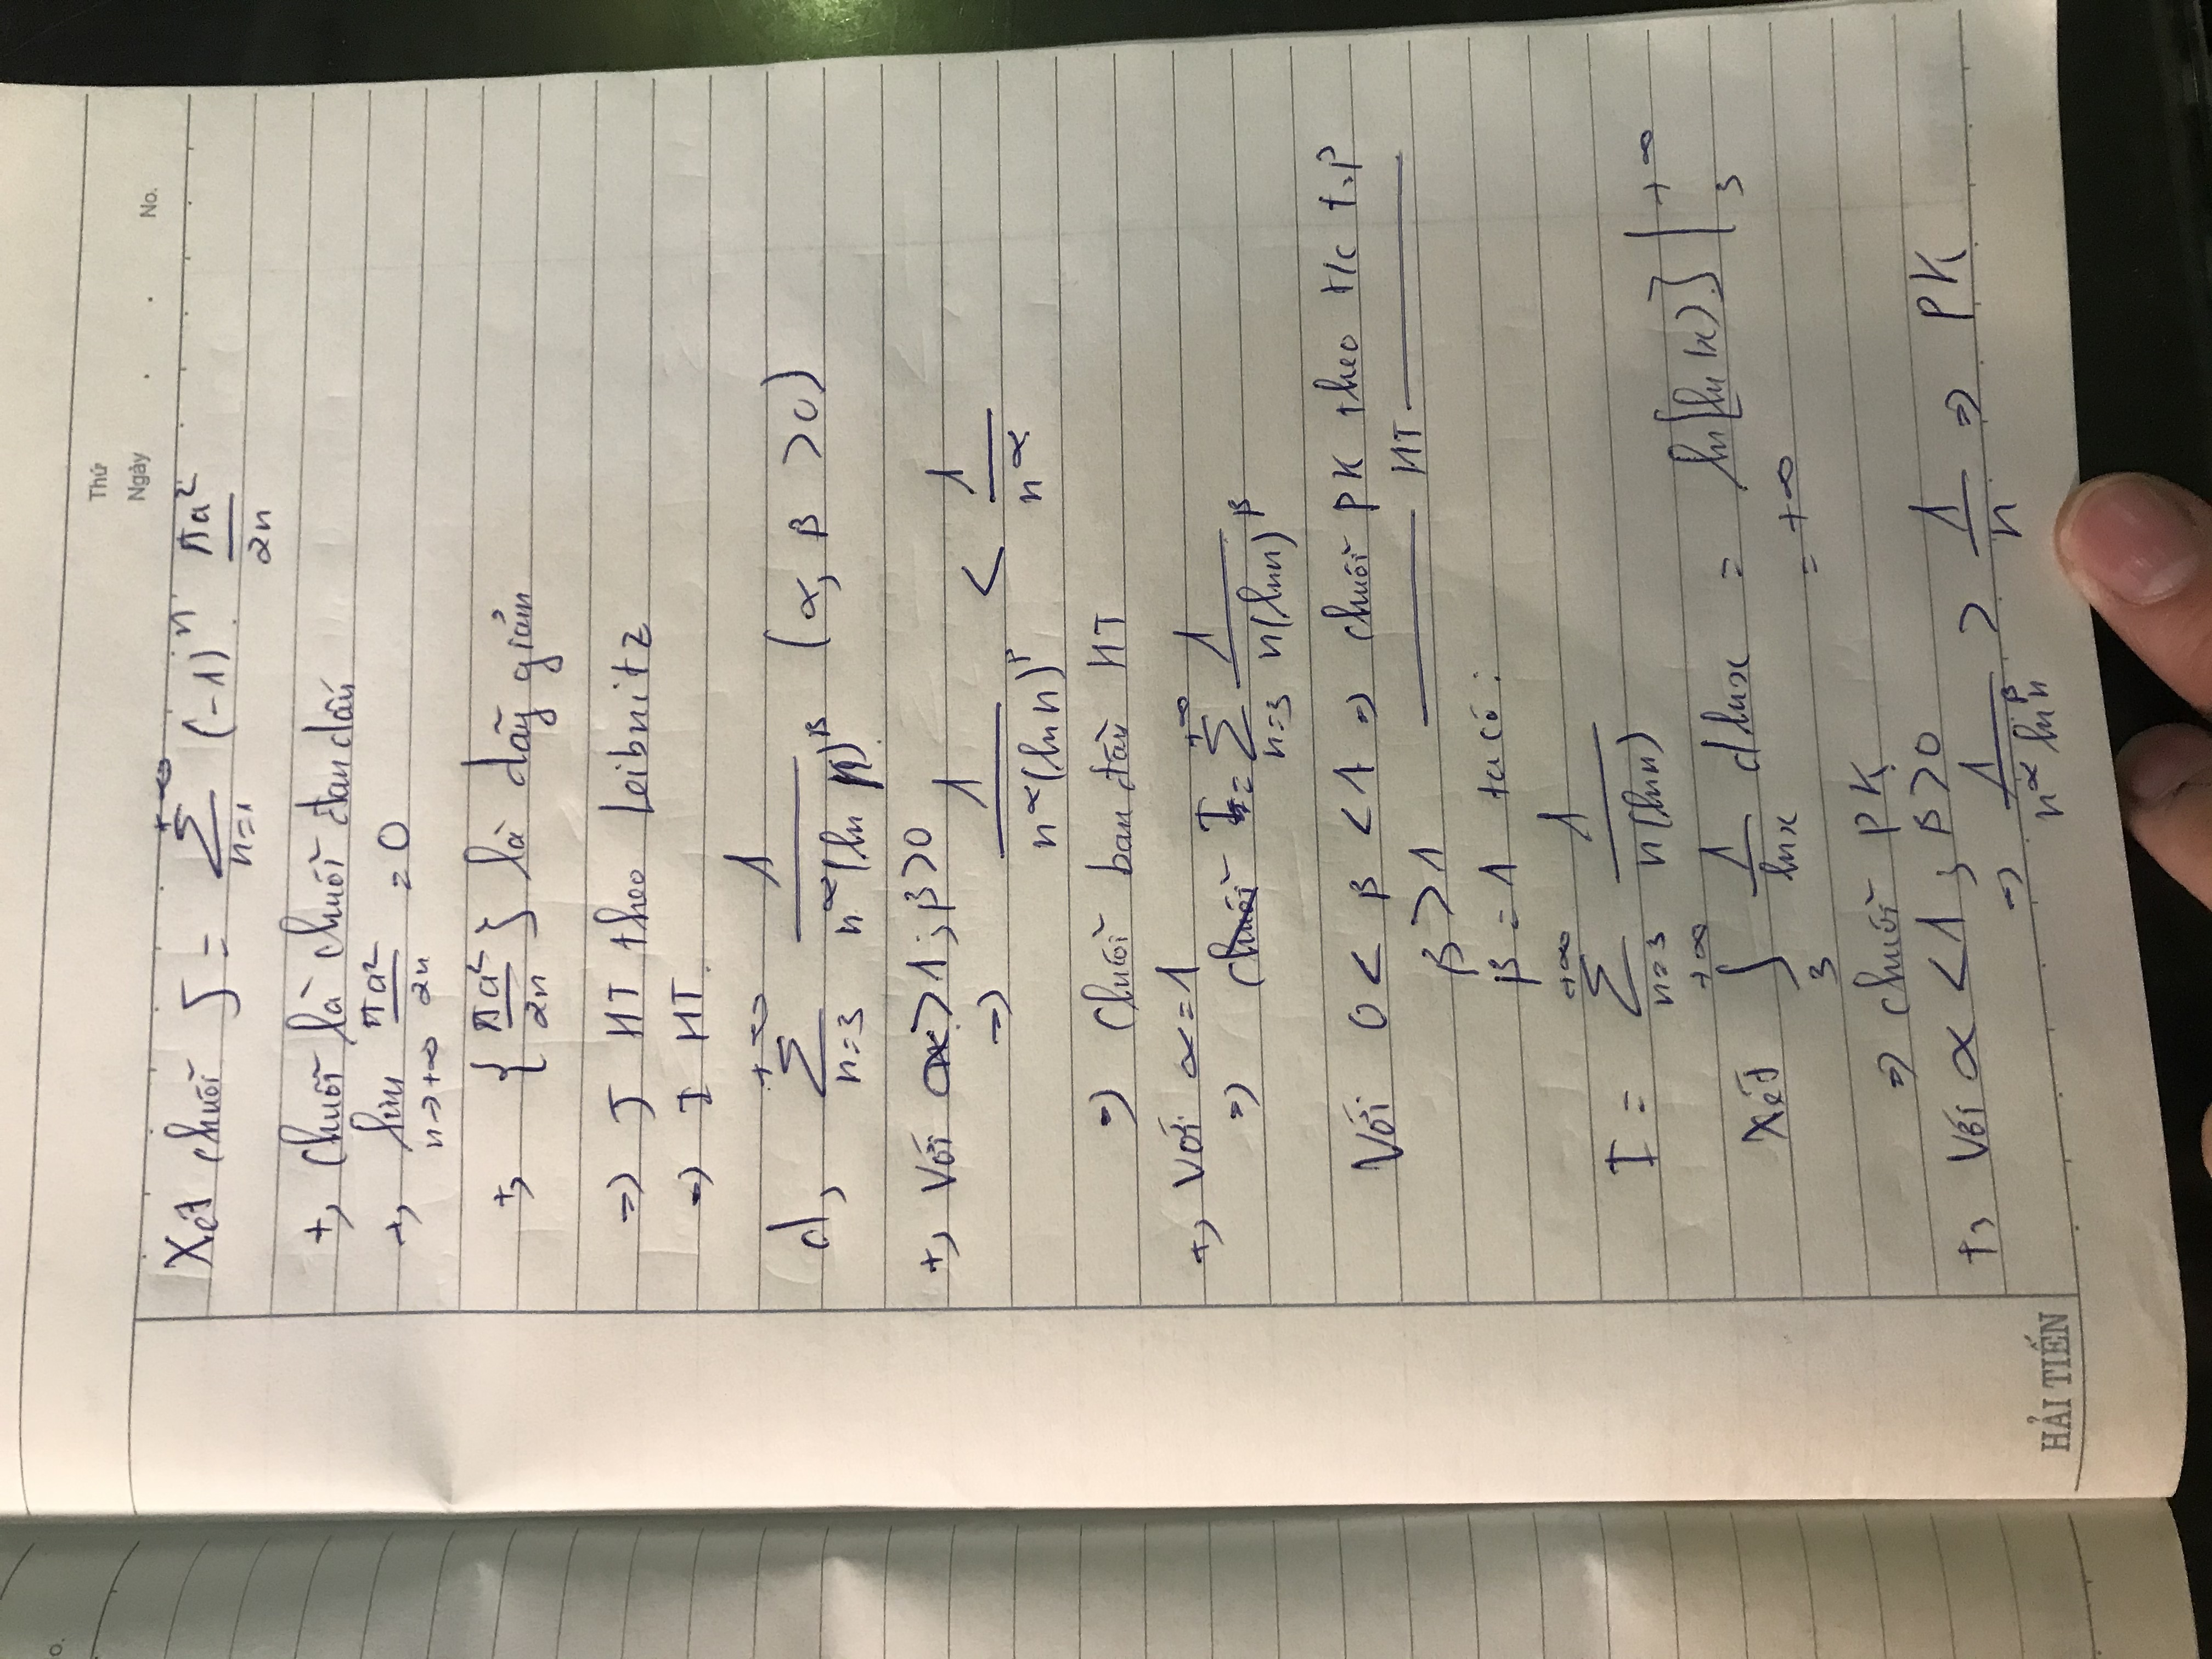 Thứ
Ngày . . No.
Xét chuỗi J = \sum_{n=1}^{+∞} (-1)^n . \frac{πa^2}{2n}
+, Chuỗi là chuỗi đan dấu
+, \lim_{n→+∞} \frac{πa^2}{2n} = 0
+, { \frac{πa^2}{2n} } là dãy giảm
=> J HT theo Leibnitz
=> I HT.
d, \sum_{n=3}^{+∞} \frac{1}{n^α (ln n)^β} (α, β > 0)
+, Với α > 1 ; β > 0
=> \frac{1}{n^α (ln n)^β} < \frac{1}{n^α}
=> Chuỗi ban đầu HT
+, Với α = 1
=> chuỗi I = \sum_{n=3}^{+∞} \frac{1}{n (ln n)^β}
Với 0 < β < 1 => chuỗi PK theo t/c t.p
β > 1 ——— HT ———
β = 1 ta có :
I = \sum_{n=3}^{+∞} \frac{1}{n (ln n)}
Xét \int_{3}^{+∞} \frac{1}{ln x} d ln x = ln[ln(x)] |_{3}^{+∞}
= +∞
=> chuỗi PK
+, Với α < 1 ; β > 0
=> \frac{1}{n^α ln^β n} > \frac{1}{n} => PK
HẢI TIẾN